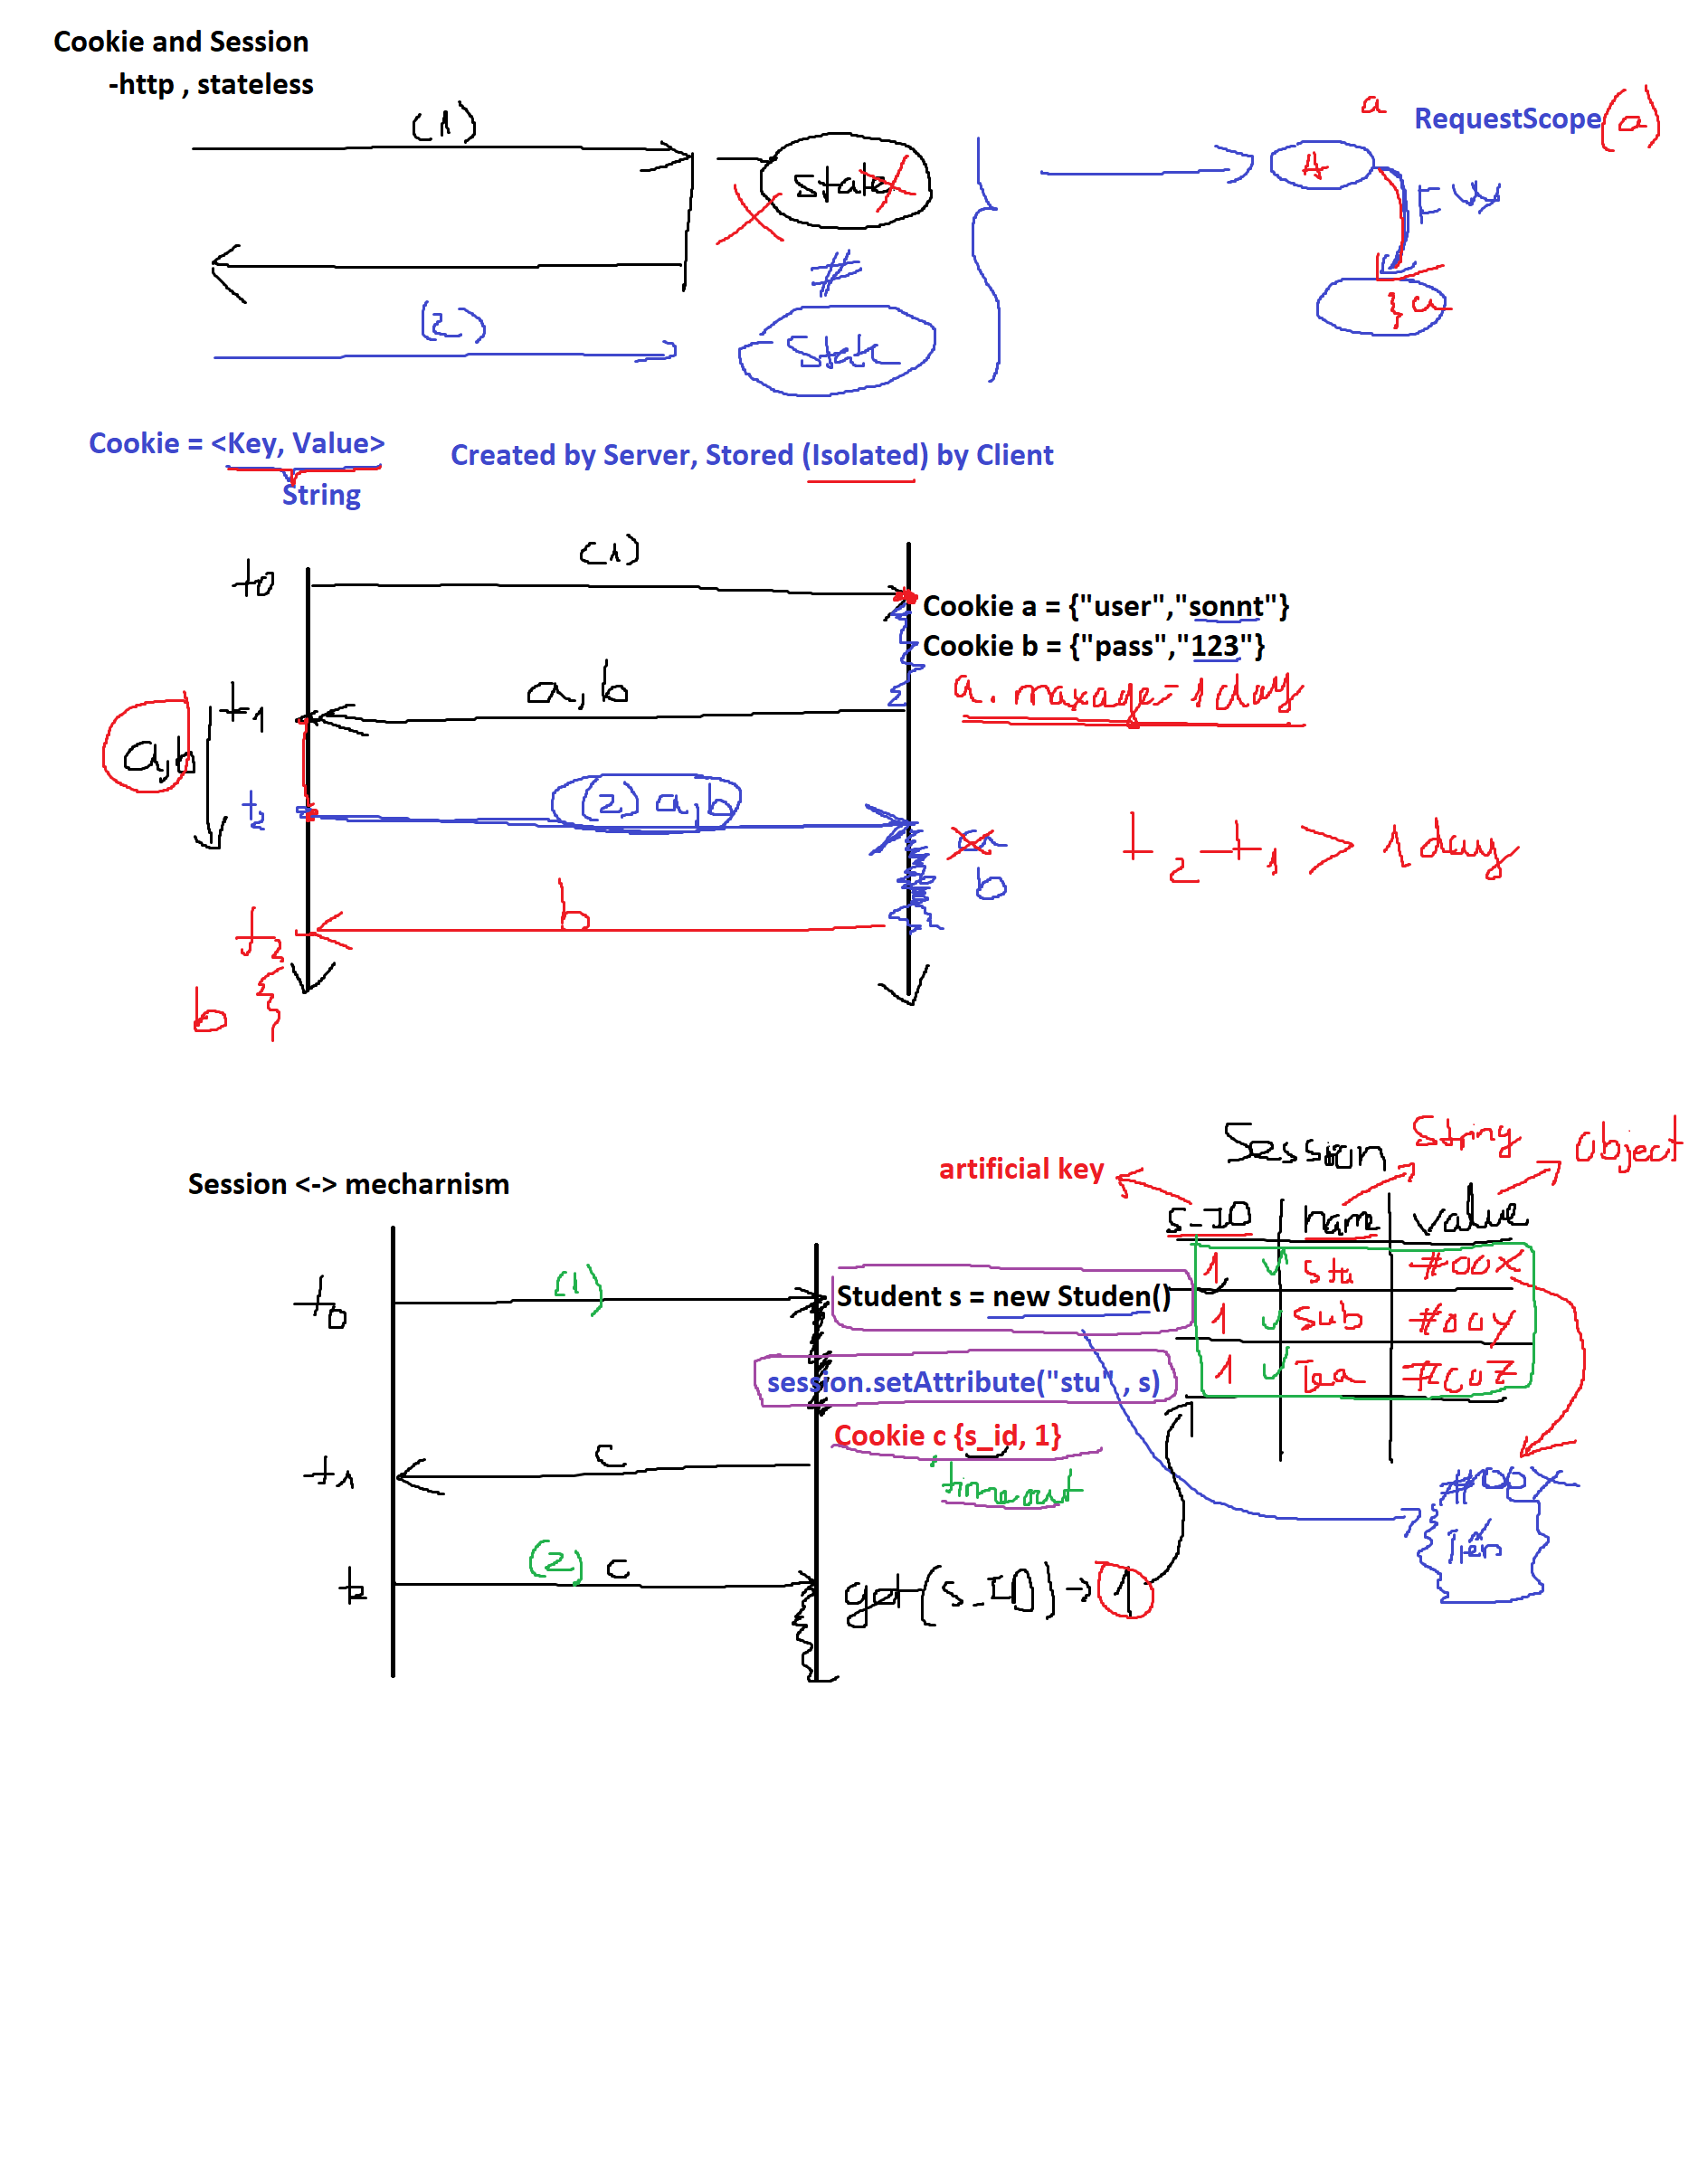 Cookie and Session
-http , stateless
(1)
state
a RequestScope (a)
A
FW
} a
#
(2)
State
Cookie = <Key, Value>
String
Created by Server, Stored (Isolated) by Client
(1)
t0
Cookie a = {"user","sonnt"}
Cookie b = {"pass","123"}
a, b
a. maxage = 1 day
t1
a,b
t2
(2) a,b
a
b
t2 - t1 > 1 day
b
t3
b }
Session String Object
artificial key
Session <-> mecharnism
s-ID name value
1 stu #00X
1 Sub #00y
1 Tea #00Z
t0
(1)
Student s = new Studen()
session.setAttribute("stu" , s)
Cookie c {s_id, 1}
timeout
c
t1
#00X
(2) c
t2
get(s_ID) -> 1